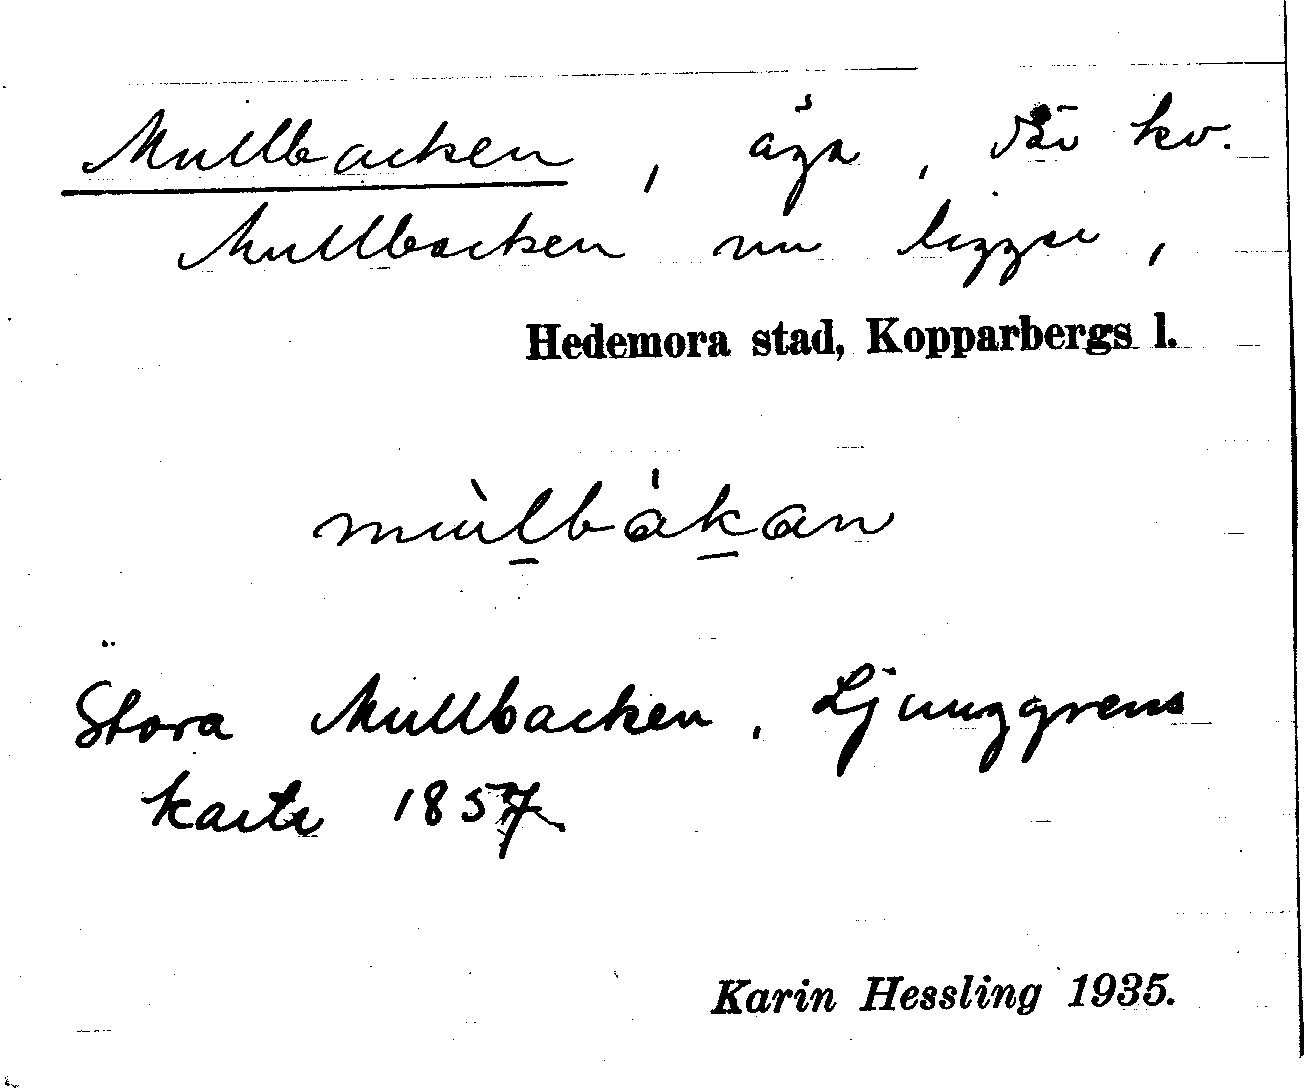 Mullbacken, äga, där kv.
Mullbacken nu ligger,
Hedemora stad, Kopparbergs l.
mùlbákan
Stora Mullbacken, Ljunggrens
karta 1857
Karin Hessling 1935.